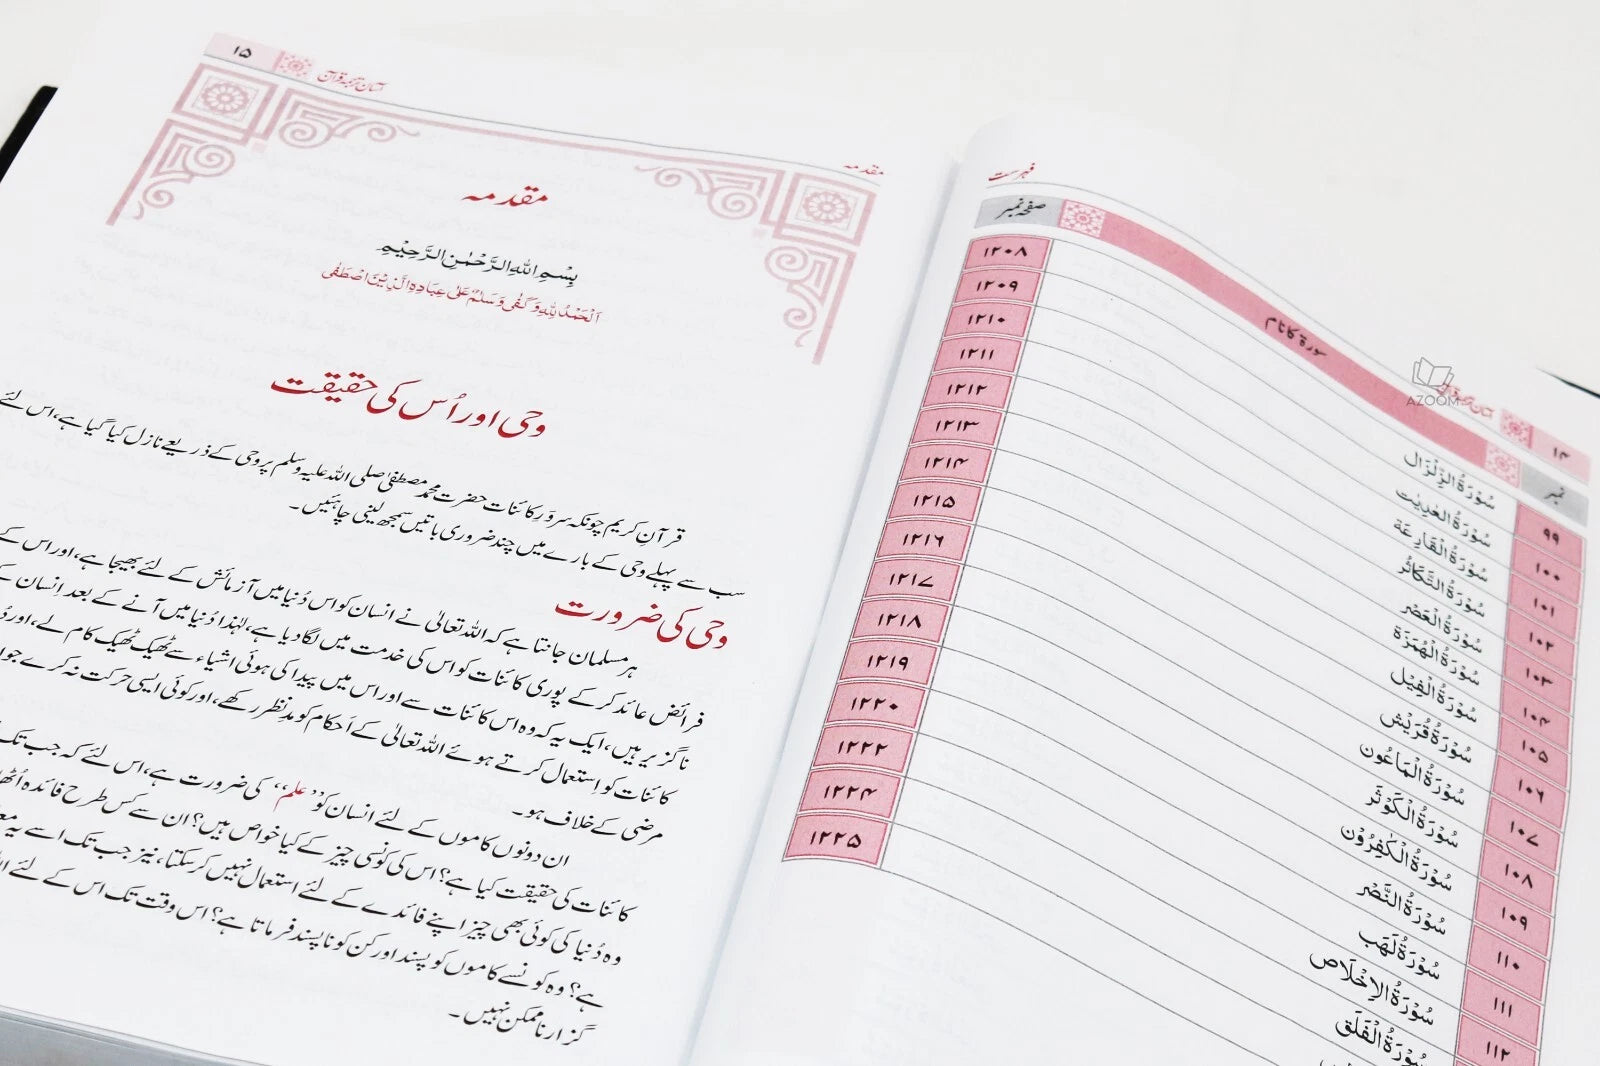 ۱۴ آسان ترجمۂ قرآن فہرست
نمبر سورۃ کا نام صفحہ نمبر
۹۹ سُوْرَةُ الزِّلْزَال ۱۲۰۸
۱۰۰ سُوْرَةُ الْعٰدِيٰت ۱۲۰۹
۱۰۱ سُوْرَةُ الْقَارِعَة ۱۲۱۰
۱۰۲ سُوْرَةُ التَّكَاثُر ۱۲۱۱
۱۰۳ سُوْرَةُ الْعَصْر ۱۲۱۲
۱۰۴ سُوْرَةُ الْهُمَزَة ۱۲۱۳
۱۰۵ سُوْرَةُ الْفِيْل ۱۲۱۴
۱۰۶ سُوْرَةُ قُرَيْش ۱۲۱۵
۱۰۷ سُوْرَةُ الْمَاعُون ۱۲۱۶
۱۰۸ سُوْرَةُ الْكَوْثَر ۱۲۱۷
۱۰۹ سُوْرَةُ الْكٰفِرُوْن ۱۲۱۸
۱۱۰ سُوْرَةُ النَّصْر ۱۲۱۹
۱۱۱ سُوْرَةُ لَهَب ۱۲۲۰
۱۱۲ سُوْرَةُ الْاِخْلَاص ۱۲۲۲
سُوْرَةُ الْفَلَق ۱۲۲۴
۱۲۲۵
AZOOM
مقدمہ آسان ترجمۂ قرآن ۱۵
مقدمہ
بِسْمِ اللهِ الرَّحْمٰنِ الرَّحِيْمِ
اَلْحَمْدُ لِلّٰهِ وَكَفٰى وَسَلٰمٌ عَلٰى عِبَادِهِ الَّذِيْنَ اصْطَفٰى
وحی اور اُس کی حقیقت
قرآنِ کریم چونکہ سروَرِ کائنات حضرت محمد مصطفیٰ صلی اللہ علیہ وسلم پر وحی کے ذریعے نازل کیا گیا ہے، اس لئے
سب سے پہلے وحی کے بارے میں چند ضروری باتیں سمجھ لینی چاہئیں۔
وحی کی ضرورت
ہر مسلمان جانتا ہے کہ اللہ تعالیٰ نے انسان کو اس دُنیا میں آزمائش کے لئے بھیجا ہے، اور اس کے
فرائض عائد کرکے پوری کائنات کو اس کی خدمت میں لگا دیا ہے، لہٰذا دُنیا میں آنے کے بعد انسان کے
ناگزیر ہیں، ایک یہ کہ وہ اس کائنات سے اور اس میں پیدا کی ہوئی اشیاء سے ٹھیک ٹھیک کام لے، اور
کائنات کو اِستعمال کرتے ہوئے اللہ تعالیٰ کے اَحکام کو مدِّنظر رکھے، اور کوئی ایسی حرکت نہ کرے جو
مرضی کے خلاف ہو۔
ان دونوں کاموں کے لئے انسان کو ”علم“ کی ضرورت ہے، اس لئے کہ جب تک
کائنات کی حقیقت کیا ہے؟ اس کی کونسی چیز کے کیا خواص ہیں؟ ان سے کس طرح فائدہ
وہ دُنیا کی کوئی بھی چیز اپنے فائدے کے لئے استعمال نہیں کرسکتا، نیز جب تک اسے یہ
ہے؟ وہ کونسے کاموں کو پسند اور کن کو ناپسند فرماتا ہے؟ اس وقت تک اس کے لئے
گزارنا ممکن نہیں۔